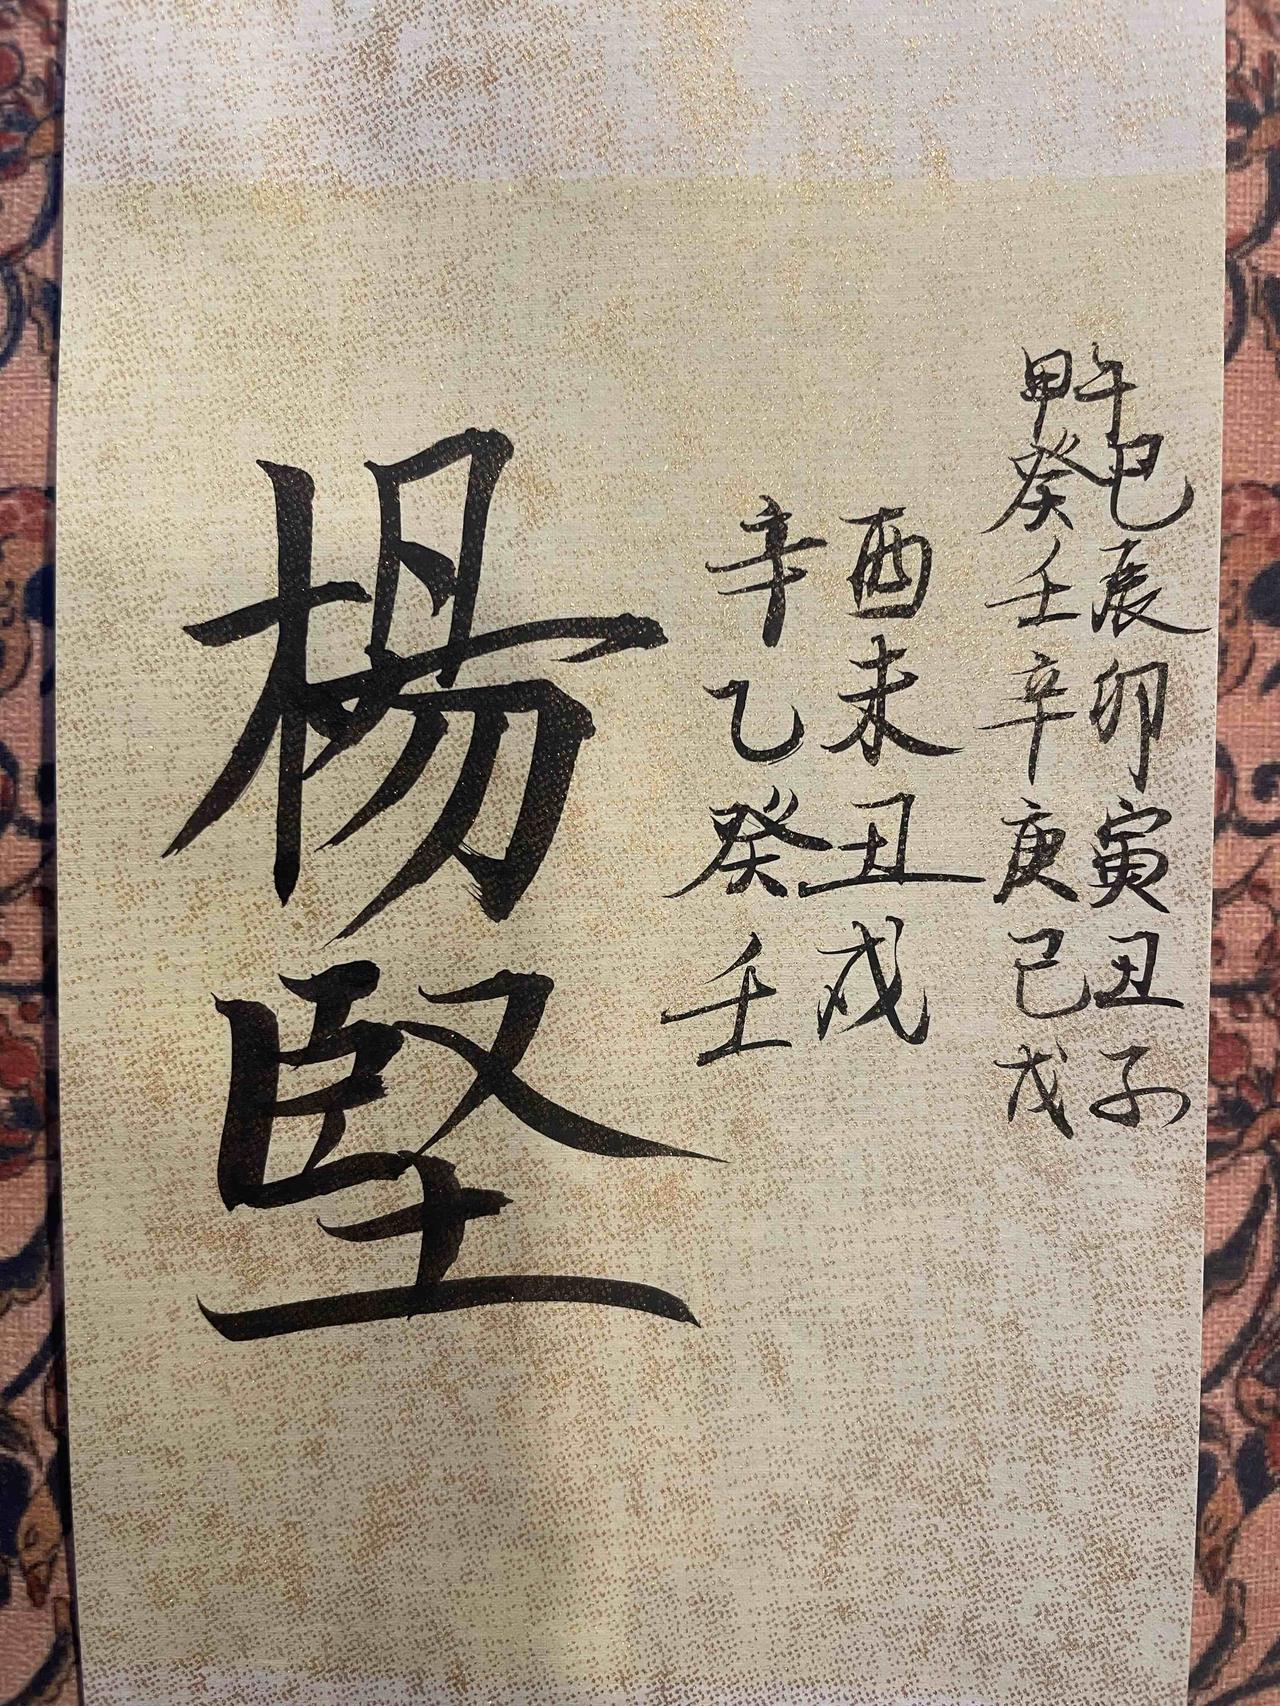 甲午
癸巳
壬辰
辛卯
庚寅
己丑
戊子
辛酉
乙未
癸丑
壬戌
楊堅